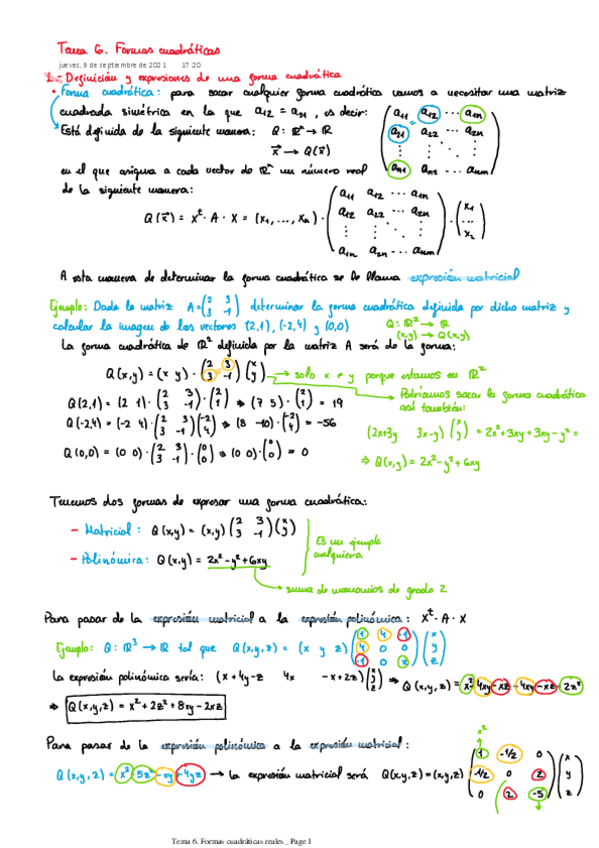 Tema 6. Formas cuadráticas
jueves, 9 de septiembre de 2021 17:20
1.- Definición y expresiones de una forma cuadrática
• Forma cuadrática: para sacar cualquier forma cuadrática vamos a necesitar una matriz
cuadrada simétrica en la que a12 = a21, es decir: (a11 a12 ... a1n
a21 a22 ... a2n
⋮ ⋮ ⋱ ⋮
an1 an2 ... ann)
Está definida de la siguiente manera: Q: ℝⁿ → ℝ
x⃗ → Q(x⃗)
en el que asigna a cada vector de ℝⁿ un número real
de la siguiente manera:
Q(x⃗) = Xᵗ · A · X = (x1, ..., xn) · (a11 a12 ... a1n
a12 a22 ... a2n
⋮ ⋮ ⋱ ⋮
a1n a2n ... ann) · (x1
...
x2)
A esta manera de determinar la forma cuadrática se le llama expresión matricial
Ejemplo: Dada la matriz A = (2 3
3 -1) determinar la forma cuadrática definida por dicha matriz y
calcular la imagen de los vectores (2,1), (-2,4) y (0,0)
Q: ℝ² → ℝ
(x,y) → Q(x,y)
La forma cuadrática de ℝ² definida por la matriz A será de la forma:
Q(x,y) = (x y) · (2 3
3 -1) (x
y) → solo x e y porque estamos en ℝ²
Q(2,1) = (2 1) · (2 3
3 -1) · (2
1) → (7 5) · (2
1) = 19
Q(-2,4) = (-2 4) · (2 3
3 -1) (-2
4) → (8 -10) · (-2
4) = -56
Q(0,0) = (0 0) · (2 3
3 -1) · (0
0) → (0 0) · (0
0) = 0
→ Podríamos sacar la forma cuadrática
así también:
(2x+3y 3x-y) (x
y) = 2x²+3xy+3xy-y² =
⇒ Q(x,y) = 2x²-y²+6xy
Tenemos dos formas de expresar una forma cuadrática:
- Matricial: Q(x,y) = (x,y) (2 3
3 -1) (x
y)
- Polinómica: Q(x,y) = 2x²-y²+6xy
Es un ejemplo
cualquiera
→ suma de monomios de grado 2
Para pasar de la expresión matricial a la expresión polinómica: Xᵗ · A · X
Ejemplo: Q: ℝ³ → ℝ tal que Q(x,y,z) = (x y z) (1 4 -1
4 0 0
-1 0 2) (x
y
z)
La expresión polinómica sería: (x+4y-z 4x -x+2z) (x
y
z) ⇒ Q(x,y,z) = x²+4xy-xz+4xy-xz+2z²
⇒ Q(x,y,z) = x²+2z²+8xy-2xz
Para pasar de la expresión polinómica a la expresión matricial:
Q(x,y,z) = x²-5z²-xy+4yz → la expresión matricial será Q(x,y,z) = (x,y,z) (1 -1/2 0
-1/2 0 2
0 2 -5) (x
y
z)
x²
Tema 6. Formas cuadráticas reales_ Page 1